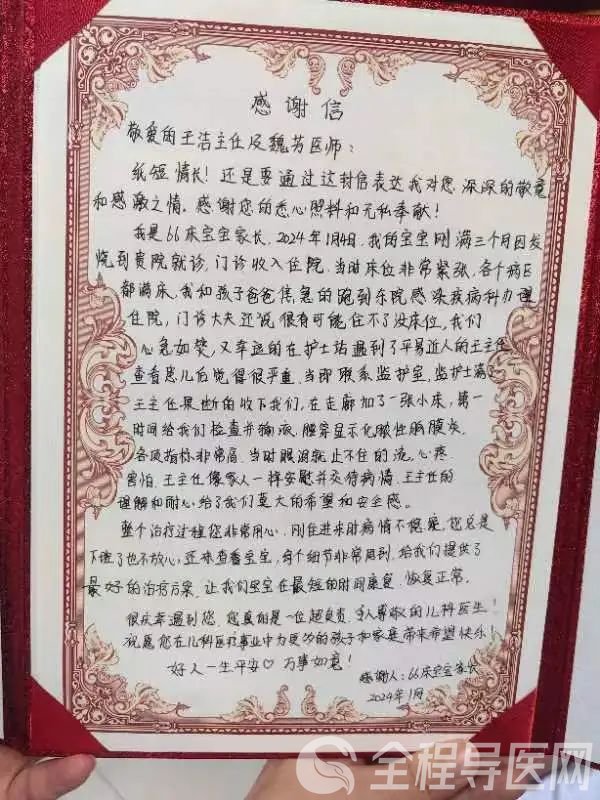 感谢信
敬爱的王洁主任及魏芳医师：
纸短情长！还是要通过这封信表达我对您深深的敬意
和感激之情。感谢您的悉心照料和无私奉献！
我是66床宝宝家长，2024年1月4日，我的宝宝刚满三个月因发
烧到贵院就诊，门诊收入住院，当时床位非常紧张，各个病区
都满床，我和孩子爸爸焦急的跑到东院感染疾病科办理
住院，门诊大夫还说很有可能住不了没床位，我们
心急如焚，又幸运的在护士站遇到了平易近人的王主任
查看患儿后觉得很严重，当即联系监护室，监护士满了
王主任果断的收下我们，在走廊加了一张小床，第一
时间给我们检查并输液，腰穿显示化脓性脑膜炎，
各项指标非常高，当时眼泪就止不住的流，心疼
害怕，王主任像家人一样安慰并交待病情，王主任的
理解和耐心给了我们莫大的希望和安全感。
整个治疗过程您非常用心，刚住进来时病情不稳定，您总是
下班了也不放心，还来查看宝宝，每个细节非常周到，给我们提供了
最好的治疗方案，让我们宝宝在最短的时间康复，恢复正常。
很庆幸遇到您，您真的是一位超负责，令人尊敬的儿科医生！
祝愿您在儿科医疗事业中为更多的孩子和家庭带来希望快乐！
好人一生平安♡ 万事如意！
感谢人：66床宝宝家长
2024年1月
全程导医网